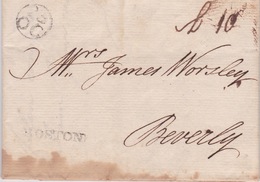 Mrs James Worsley
BOSTON
Beverly